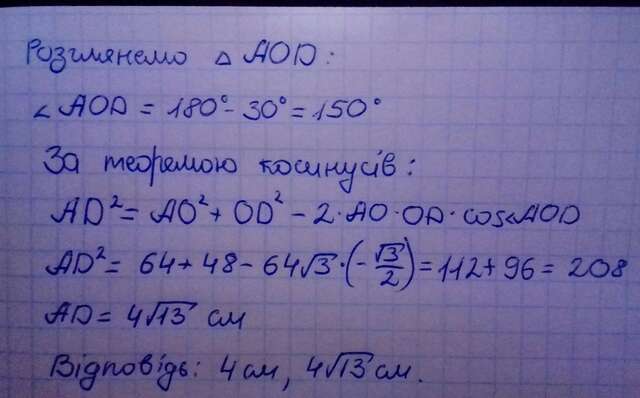 Розглянемо △ AOD:
∠AOD = 180° - 30° = 150°
За теоремою косинусів:
AD² = AO² + OD² - 2·AO·OD·cos∠AOD
AD² = 64 + 48 - 64√3·(-√3/2) = 112 + 96 = 208
AD = 4√13 см
Відповідь: 4 см, 4√13 см.